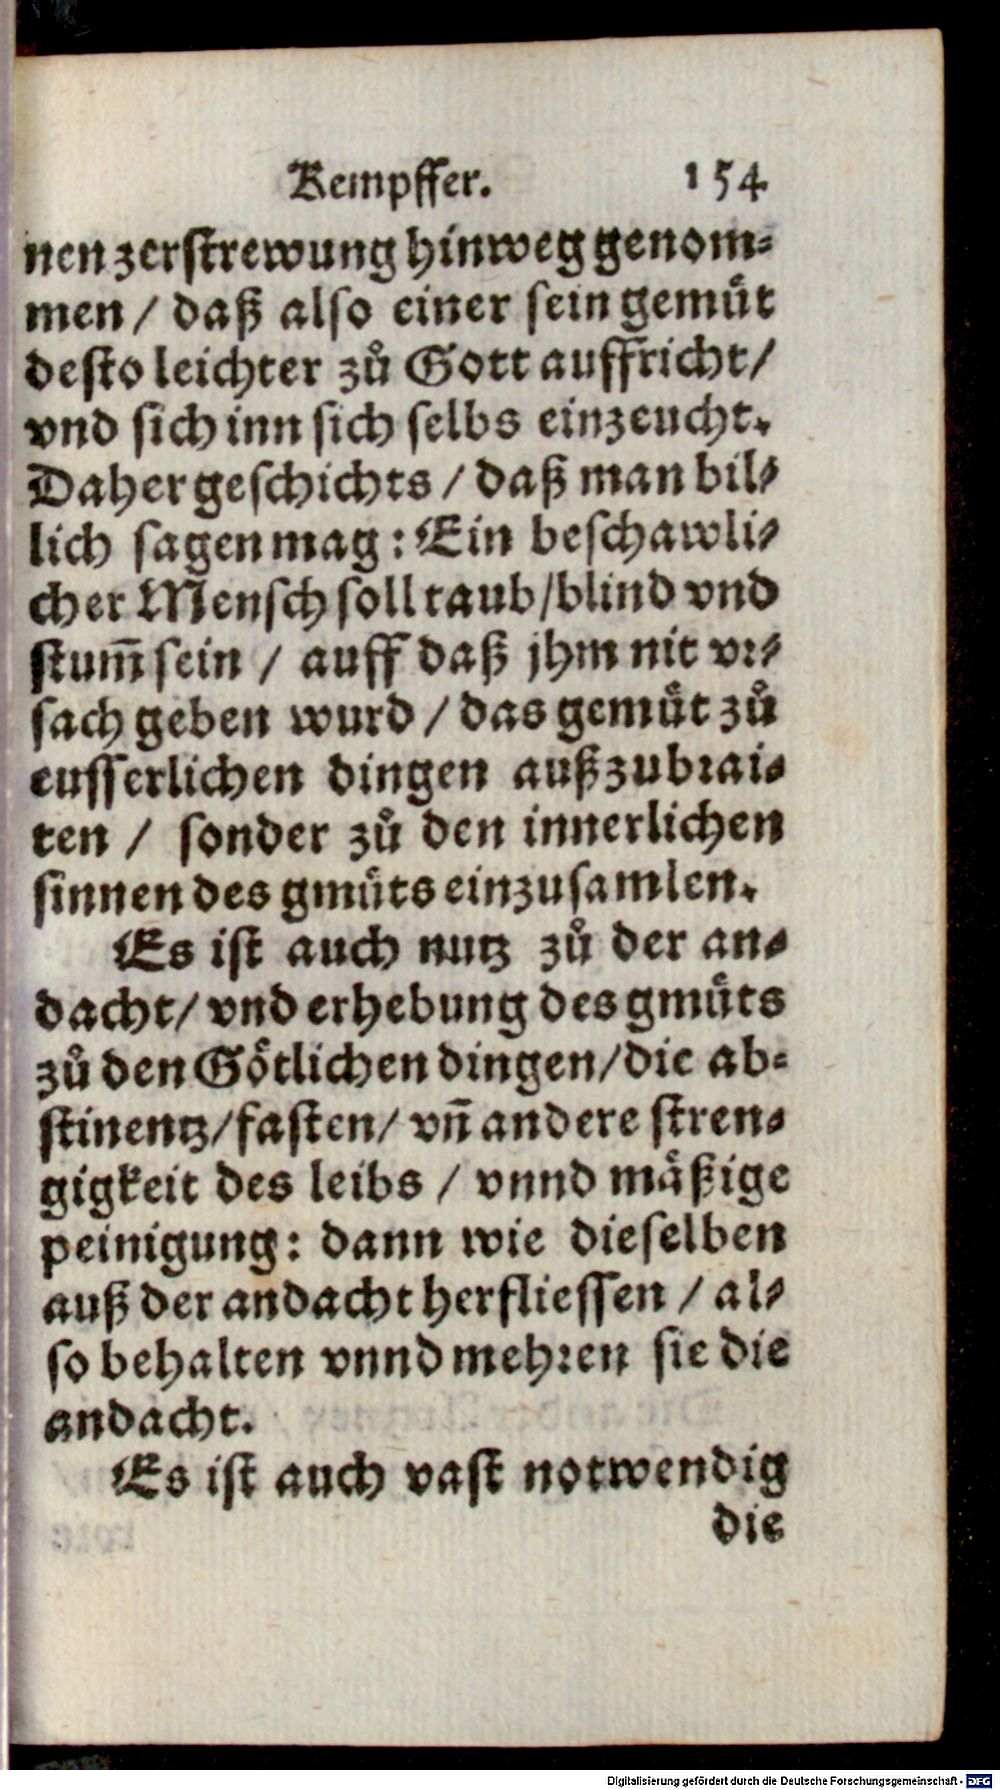 Kempffer. 154
nen zerstrewung hinweg genom-
men / daß also einer sein gemüt
desto leichter zů Gott auffricht /
vnd sich inn sich selbs einzeucht.
Daher geschichts / daß man bil-
lich sagen mag: Ein beschawli-
cher Mensch soll taub / blind vnd
stum̃ sein / auff daß jhm nit vr-
sach geben wurd / das gemüt zů
eusserlichen dingen außzubrai-
ten / sonder zů den innerlichen
sinnen des gmüts einzusamlen.
Es ist auch nutz zů der an-
dacht / vnd erhebung des gmüts
zů den Götlichen dingen / die ab-
stinentz / fasten / vñ andere stren-
gigkeit des leibs / vnnd mäßige
peinigung: dann wie dieselben
auß der andacht herfliessen / al-
so behalten vnnd mehren sie die
andacht.
Es ist auch vast notwendig
die
Digitalisierung gefördert durch die Deutsche Forschungsgemeinschaft - DFG